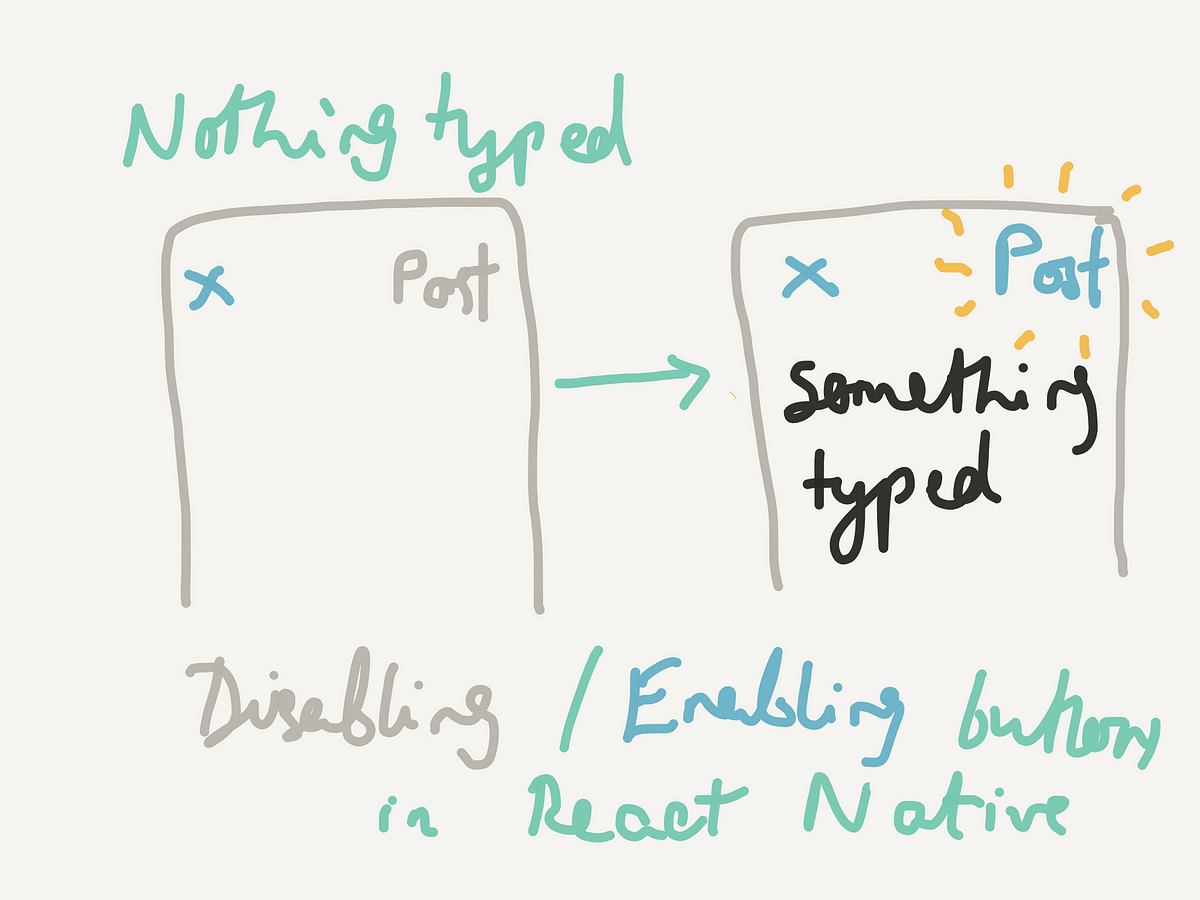 Nothing typed
X Post
X Post
something
typed
Disabling / Enabling buttons
in React Native